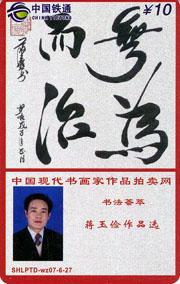 中国铁通
CHINA TIETONG
¥10
無為
而治
中国现代书画家作品拍卖网
书法荟萃
蒋玉俭作品选
SHLPTD-wz07-6-27